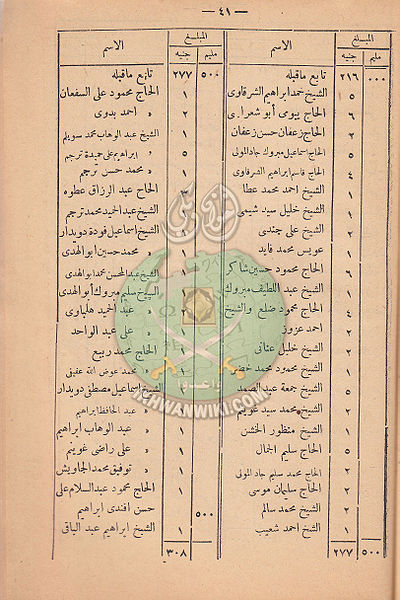 — ٤١ —
الاسم المبلغ
جنيه مليم
تابع ماقبله ٢١٦ ٠٠٠
الشيخ حمد ابراهيم الشرقاوى ٥
الحاج بيومى أبو شعراوى ٦
الحاج زعفان حسن زعفان ٢
الحاج اسماعيل مبروك جاد المولى ٥
الحاج قاسم ابراهيم الشرقاوى ٤
الشيخ احمد محمد عطا ١
الشيخ خليل سيد شيمى ١
الشيخ على جندى ٢
عويس محمد فايد ١
الحاج محمود حسين شاكر ٦
الشيخ عبد اللطيف مبروك ١
الحاج محمود ضلع والشيخ ٤
احمد عزوز ٢
الشيخ خليل عنانى ٢
الشيخ محمود محمد خضر ١
الشيخ جمعة عبد الصمد ٥
الشيخ محمد سيد غويم ٢
الشيخ منظور الخشن ١
الحاج سليم الجمال ٥
الحاج محمد سليم جاد المولى ٢
الحاج سليمان موسى ٢
الشيخ محمد سالم ٢
الشيخ احمد شعيب ١
٢٧٧ ٥٠٠
الاسم المبلغ
جنيه مليم
تابع ماقبله ٢٧٧ ٥٠٠
الحاج محمود على السفعان ١
» احمد بدوى ٢
الشيخ عبد الوهاب محمد سويلم ١
» ابراهيم على حميدة ترجم ٥
» محمد حسن ترجم ١
الحاج عبد الرزاق عطوه ٣
الشيخ عبد الحميد محمد ترجم ١
الشيخ اسماعيل فودة دويدار ١
» محمد حسين أبو الهدى ١
الشيخ عبد المحسن محمد ابو الهدى ١
الشيخ سليم مبروك أبو الهدى ١
» عبد الحميد هلباوى ٢
» على عبد الواحد ١
الحاج محمد ربيع ١
» محمد عوض الله عفيفى ١
الشيخ اسماعيل مصطفى دويدار ١
» عبد الحافظ ابراهيم ١
» عبد الوهاب ابراهيم ١
» على راضى غويم ١
» توفيق محمد الجاويش ١
الحاج محمود عبد السلام على ١
حسن افندى ابراهيم ٥٠٠
الشيخ ابراهيم عبد الباقى ١
٣٠٨
اخوان ويكى
وأعدوا
IKHWANWIKI.COM